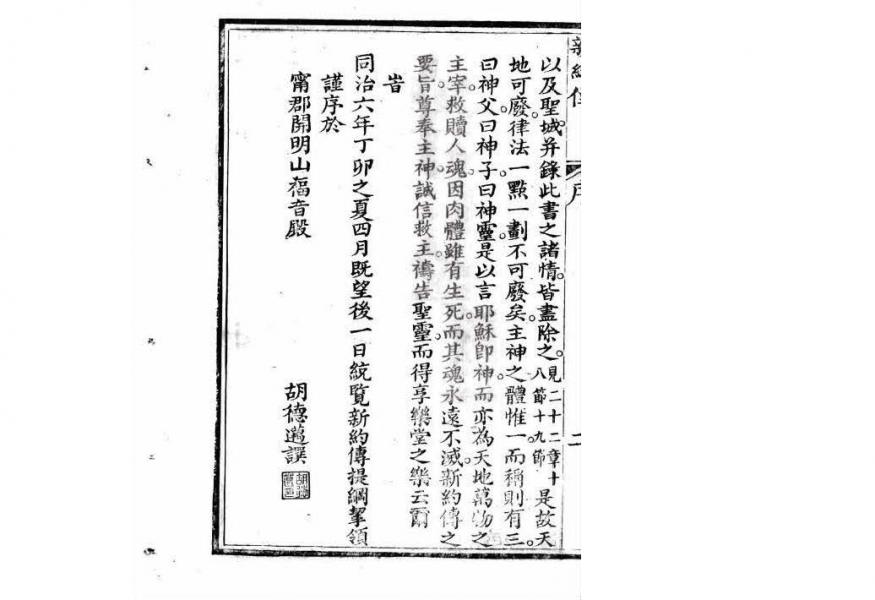 新約傳 序 二
以及聖城。并錄此書之諸情。皆盡除之。見二十二章十八節十九節是故天
地可廢。律法一點一劃不可廢矣。主神之體惟一。而稱則有三。
曰神父。曰神子。曰神靈。是以言耶穌卽神。而亦為天地萬物之
主宰。救贖人魂。因肉體雖有生死。而其魂永遠不滅。新約傳之
要旨。尊奉主神。誠信救主。禱告聖靈。而得享樂堂之樂云爾
旹
同治六年丁卯之夏四月既望後一日統覽新約傳提綱挈領
謹序於
甯郡開明山福音殿
胡德邁譔